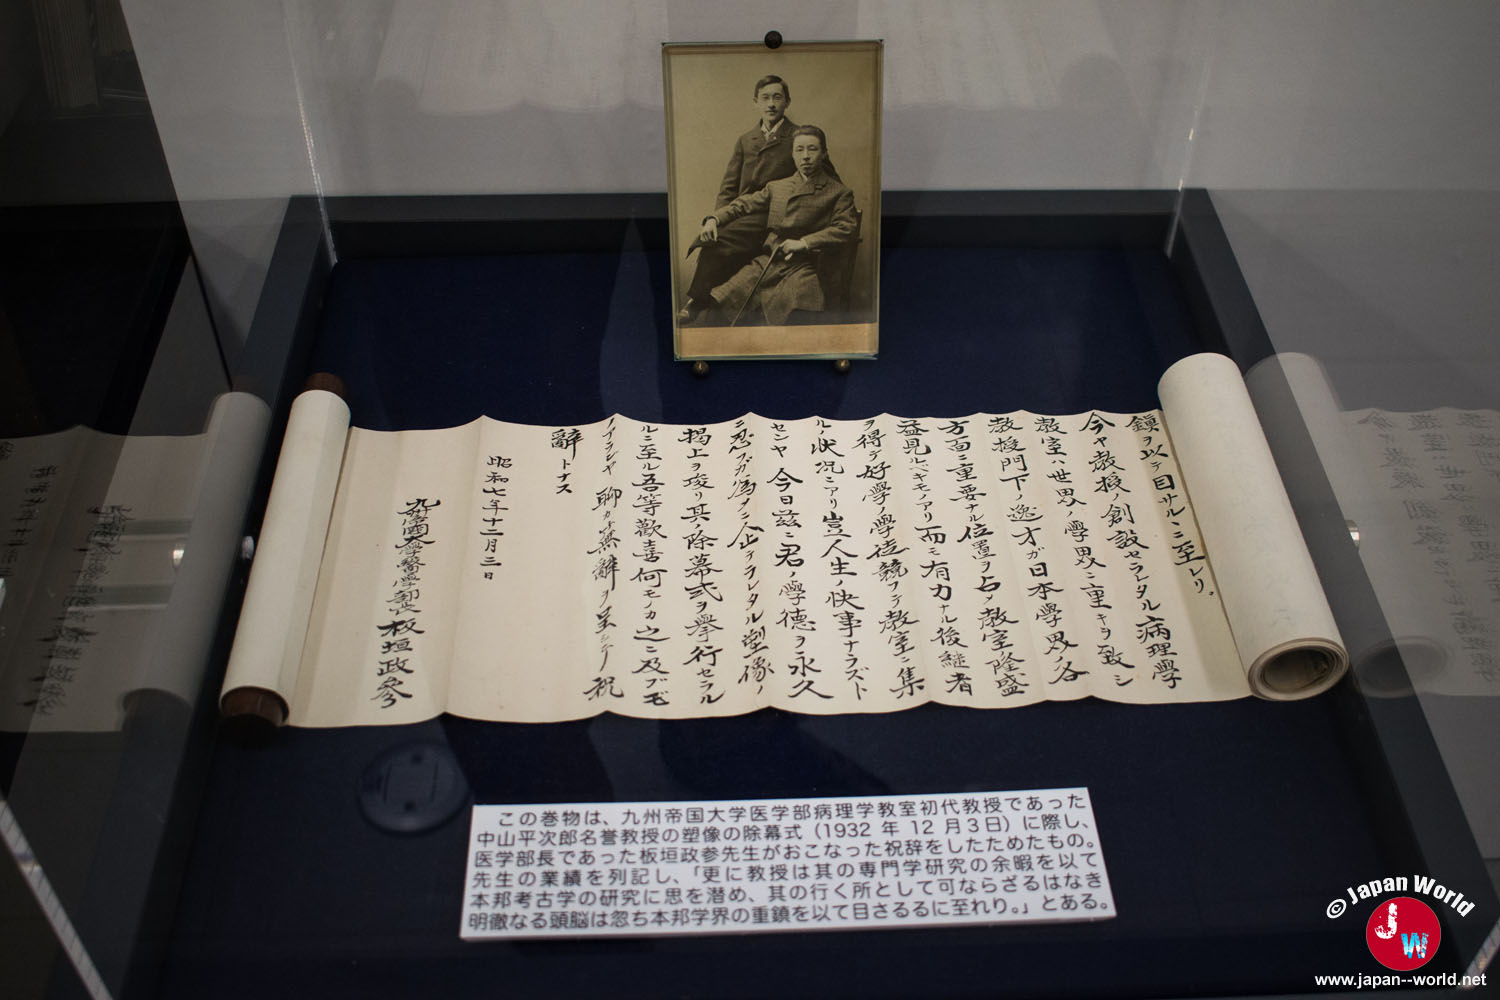 鎭ヲ以テ目サルヽニ至レリ。
今ヤ教授ノ創設セラレタル病理學
教室ハ世界ノ學界ニ重キヲ致シ
教授門下ノ逸才ガ日本學界ノ各
方面ニ重要ナル位置ヲ占メ教室ノ隆盛
益見ルベキモノアリ而モ有力ナル後継者
ヲ得テ好學ノ學徒競フテ教室ニ集
ルノ状況ニアリ豈人生ノ快事ナラズト
センヤ 今日茲ニ君ノ學德ヲ永久
ニ忍ブガ為 企テラレタル塑像ノ
竣リ其ノ除幕式ヲ擧行セラル
ルニ至ル吾等歡喜何モノカ之ニ及ブモ
ノアランヤ 聊カ蕪辭ヲ呈シテ祝
辭トナス
昭和七年十二月三日
九州帝國大學醫學部長 板垣政參
この巻物は、九州帝国大学医学部病理学教室初代教授であった
中山平次郎名誉教授の塑像の除幕式（1932 年 12 月3日）に際し、
医学部長であった板垣政参先生がおこなった祝辞をしたためたもの。
先生の業績を列記し、「更に教授は其の専門学研究の余暇を以て
本邦考古学の研究に思を潜め、其の行く所として可ならざるはなき
明徹なる頭脳は忽ち本邦学界の重鎮を以て目さるるに至れり。」とある。
© Japan World
J W
www.japan--world.net